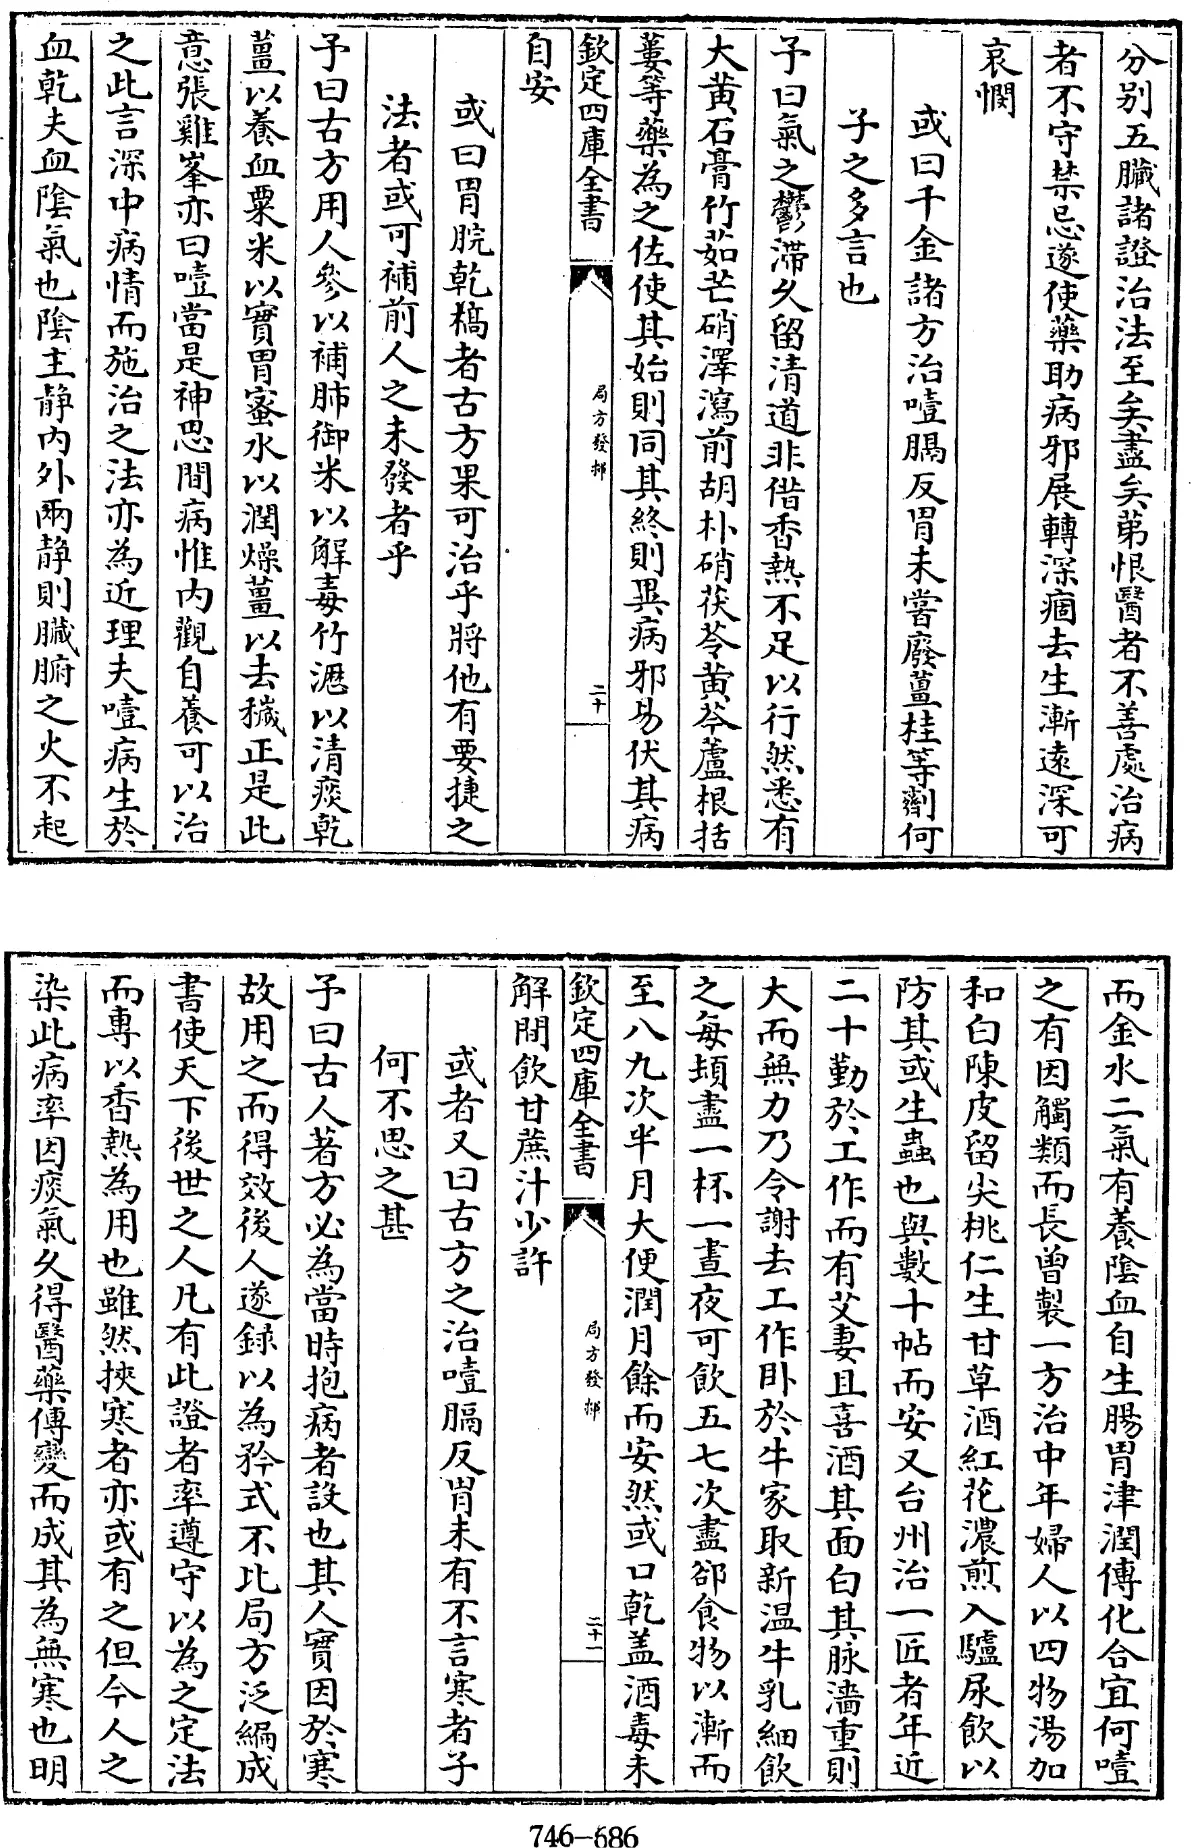 分别五臟諸證治法至矣盡矣第恨醫者不善處治病
者不守禁忌遂使藥助病邪展轉深痼去生漸遠深可
哀憫
或曰千金諸方治噎膈反胃未嘗廢薑桂等劑何
子之多言也
予曰氣之鬱滯久留清道非借香熱不足以行然悉有
大黄石膏竹茹芒硝澤瀉前胡朴硝茯苓黄芩蘆根括
蔞等藥為之佐使其始則同其終則異病邪易伏其病
欽定四庫全書
局方發揮
二十
自安
或曰胃脘乾槁者古方果可治乎將他有要捷之
法者或可補前人之未發者乎
予曰古方用人參以補肺御米以解毒竹瀝以清痰乾
薑以養血粟米以實胃蜜水以潤燥薑以去穢正是此
意張雞峯亦曰噎當是神思間病惟内觀自養可以治
之此言深中病情而施治之法亦為近理夫噎病生於
血乾夫血陰氣也陰主靜内外兩靜則臟腑之火不起
而金水二氣有養陰血自生腸胃津潤傳化合宜何噎
之有因觸類而長曾製一方治中年婦人以四物湯加
和白陳皮留尖桃仁生甘草酒紅花濃煎入驢尿飲以
防其或生蟲也與數十帖而安又台州治一匠者年近
二十勤於工作而有艾妻且喜酒其面白其脉濇重則
大而無力乃令謝去工作卧於牛家取新温牛乳細飲
之每頓盡一杯一晝夜可飲五七次盡卻食物以漸而
至八九次半月大便潤月餘而安然或口乾盖酒毒未
欽定四庫全書
局方發揮
二十一
解間飲甘蔗汁少許
或者又曰古方之治噎膈反胃未有不言寒者子
何不思之甚
予曰古人著方必為當時抱病者設也其人實因於寒
故用之而得效後人遂録以為矜式不比局方泛編成
書使天下後世之人凡有此證者率遵守以為之定法
而專以香熱為用也雖然挾寒者亦或有之但今人之
染此病率因痰氣久得醫藥傳變而成其為無寒也明
746-686